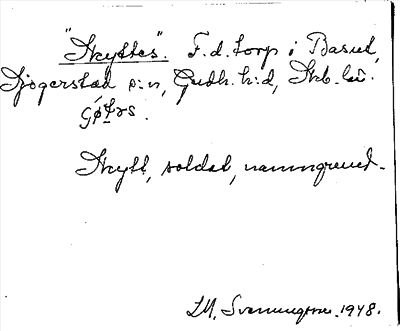 "Skyttes". F.d. torp i Basud,
Sjögerstad s:n, Gudh. h:d, Skb. län.
Skytt, soldat, namngivet.
LM, Svenungson. 1948.